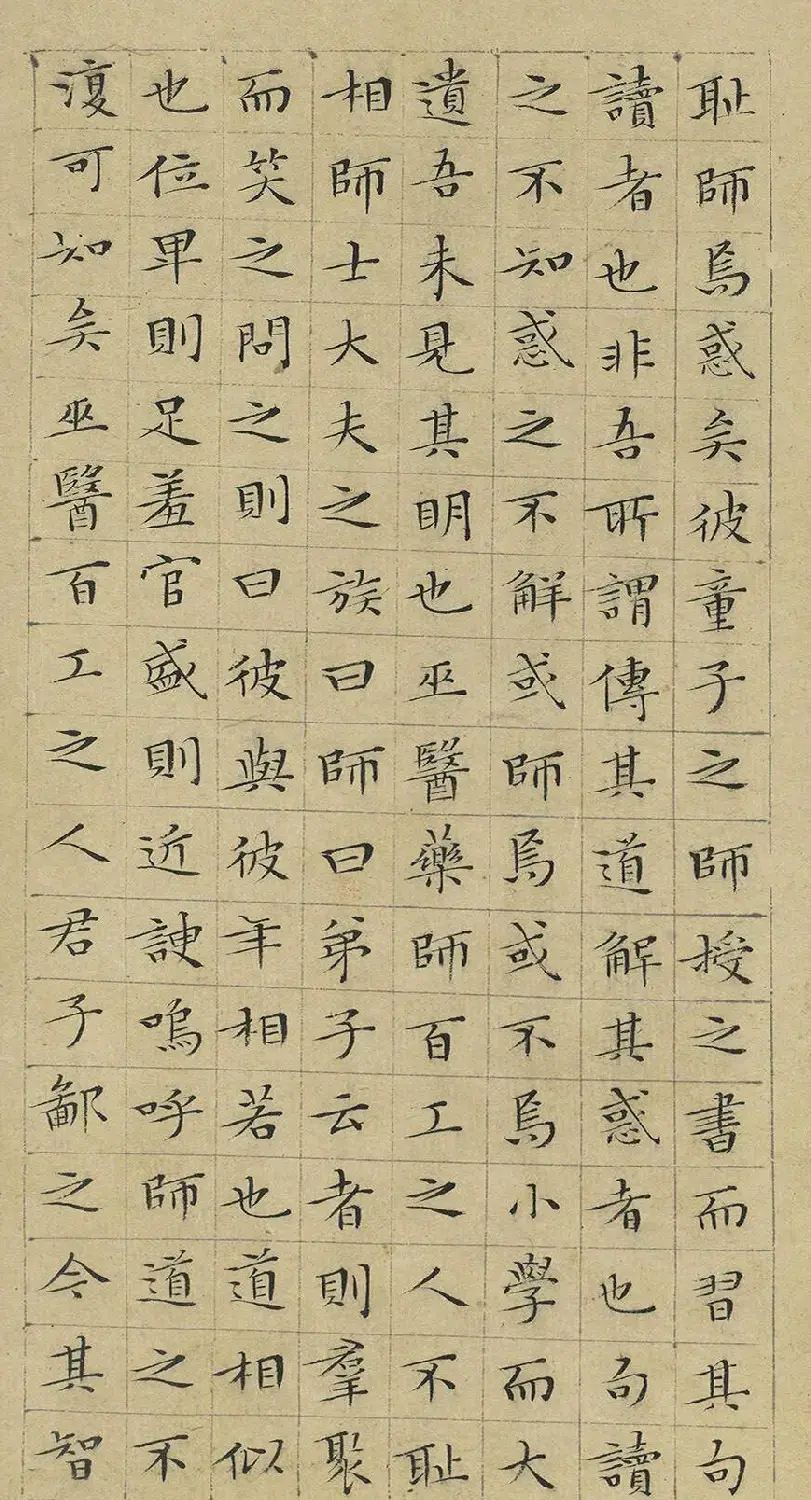 耻師焉惑矣彼童子之師授之書而習其句
讀者也非吾所謂傳其道解其惑者也句讀
之不知惑之不解或師焉或不焉小學而大
遺吾未見其明也巫醫藥師百工之人不耻
相師士大夫之族曰師曰弟子云者則羣聚
而笑之問之則曰彼與彼年相若也道相似
也位卑則足羞官盛則近諛嗚呼師道之不
復可知矣巫醫百工之人君子鄙之今其智